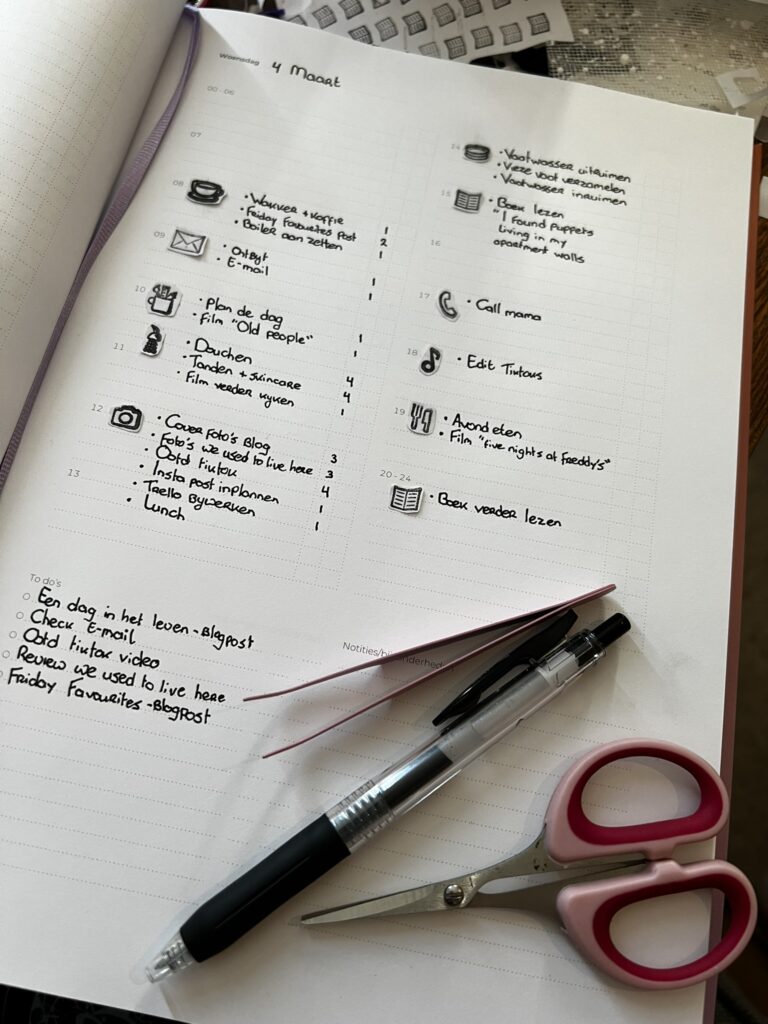 Woensdag 4 Maart
00-06
07
08
• Wakker + Koffie 1
• Friday Favourites Post 2
• Boiler aan zetten 1
09
• Ontbyt 1
• E-mail 1
10
• Plan de dag 1
• Film "Old People" 1
11
• Douchen 4
• Tanden + Skincare 4
• Film verder kyken 1
12
• Cover foto's Blog 3
• Foto's we used to live here 3
• Ootd tiktok 4
• Insta post inplannen 1
13
• Trello Bywerken 1
• Lunch
14
• Vaatwasser uitruimen
• Vieze Vaat verzamelen
• Vaatwasser inruimen
15
• Boek lezen
"I Found Puppets
living in my
apartment walls
16
17
• Call mama
18
• Edit Tiktoks
19
• Avond eten
• Film "five nights at freddy's"
20-24
• Boek verder lezen
To do's
Een dag in het leven - Blogpost
Check E-mail
Ootd tiktok video
Review we used to live here
Friday Favourites - Blogpost